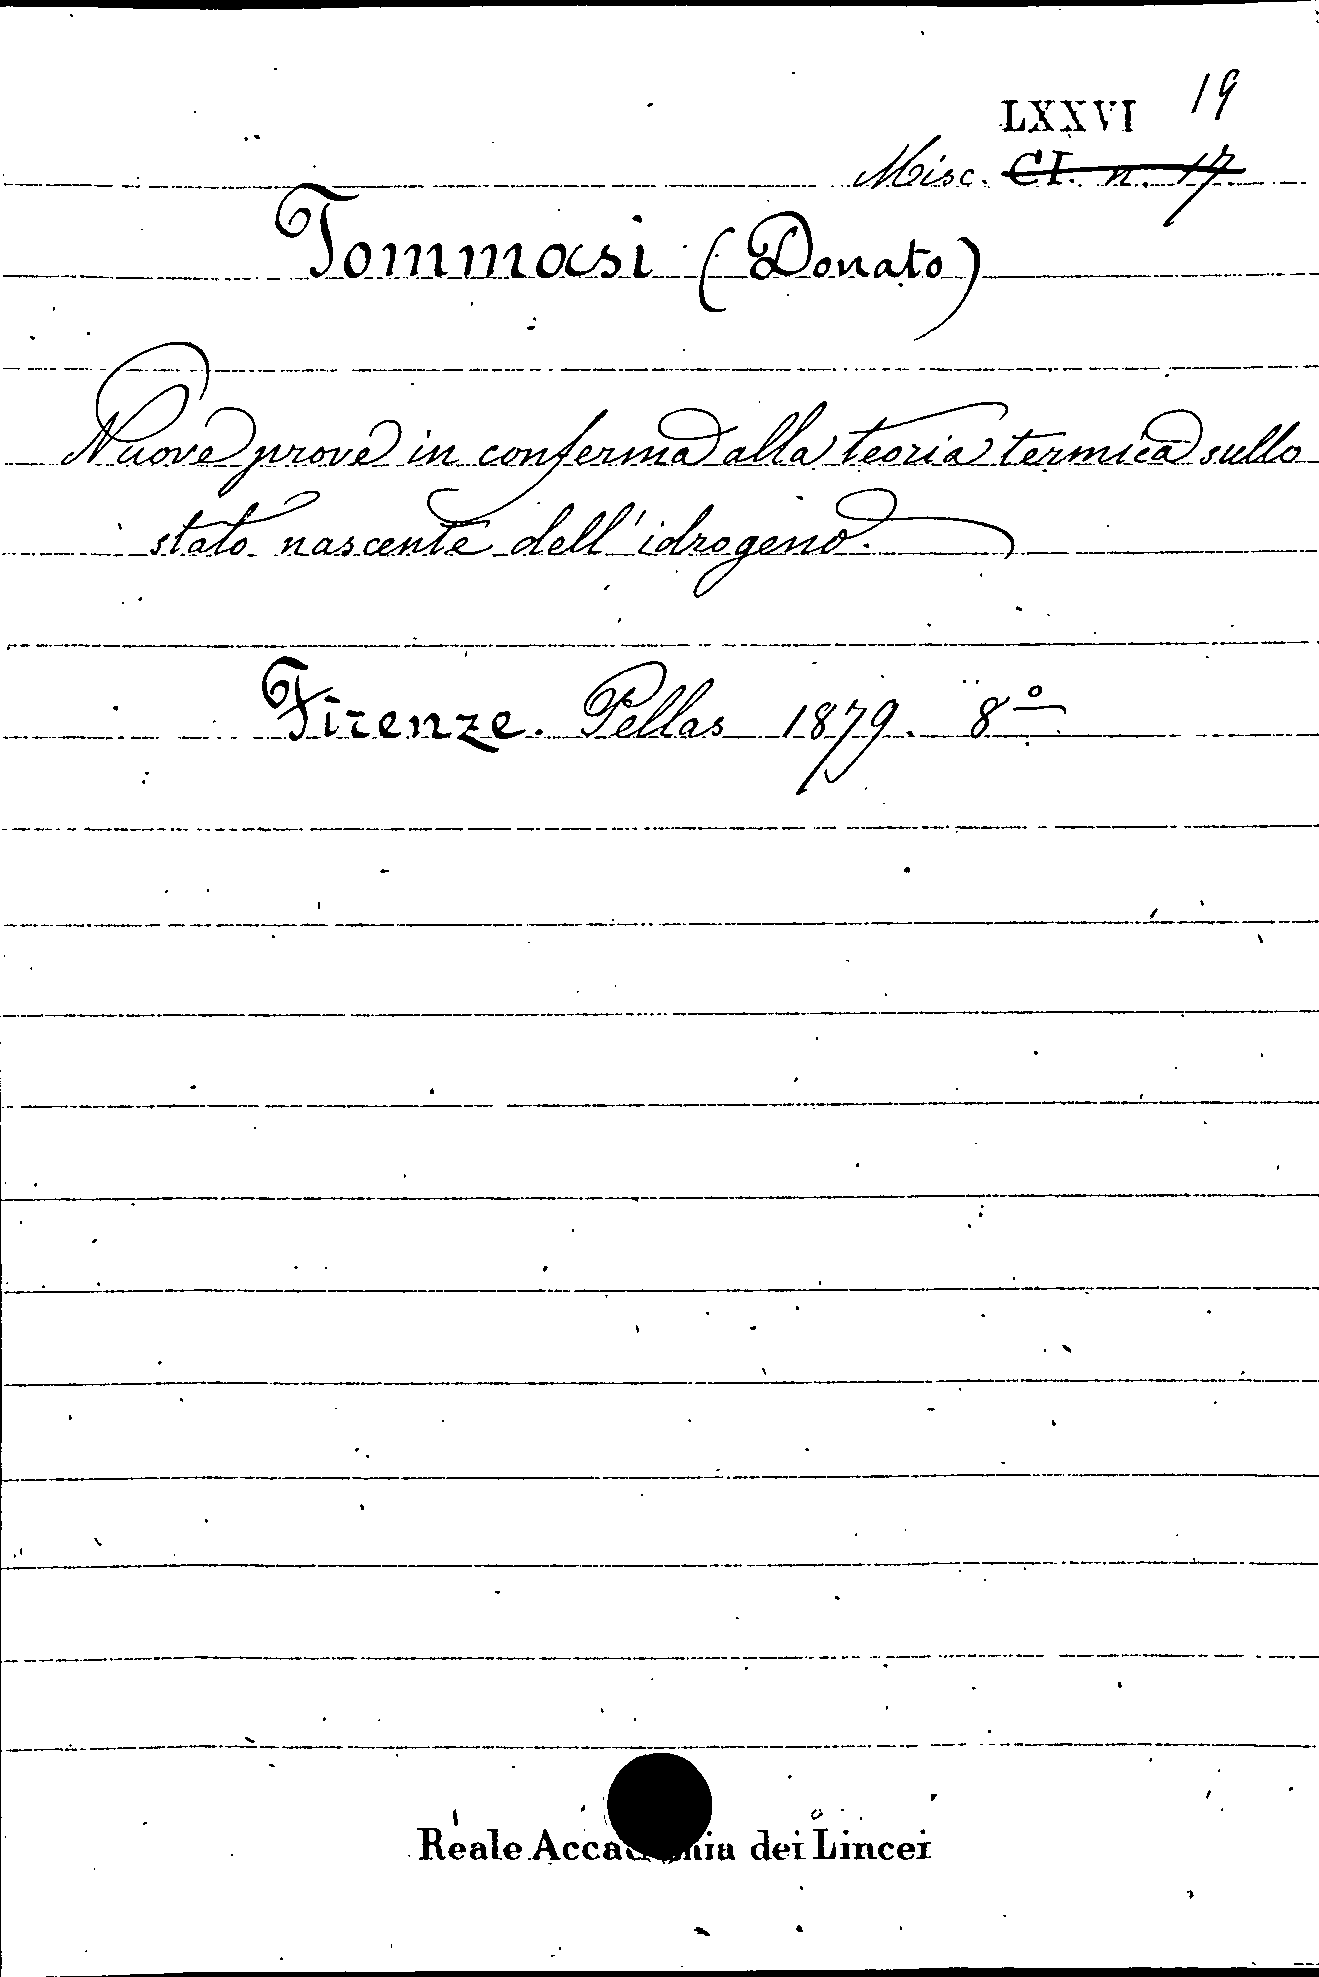 LXXVI 19
Misc. CI. n. 17
Tommasi (Donato)
Nuove prove in conferma alla teoria termica sullo
stato nascente dell'idrogeno.
Firenze. Pellas 1879. 8º
Reale Accademia dei Lincei